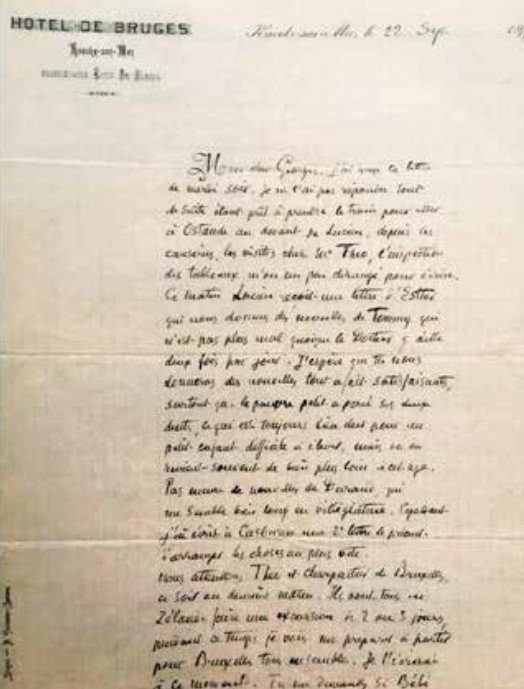 HOTEL DE BRUGES
Knocke-sur-Mer
PROPRIETAIRE
Knocke-sur-Mer, le 22 Sep
Mon cher Georges, j'ai reçu ta lettre
de mardi soir. Je ne t'ai pas répondu tout
de suite étant prêt à prendre le train pour aller
à Ostende au devant de Lucien, depuis les
causeries, les visites chez Théo, l'inspection
des tableaux m'ont un peu dérangé pour écrire.
Ce matin Lucien reçoit une lettre d'Esther
qui nous donne des nouvelles de Tommy qui
n'est pas plus mal quoique le Docteur y aille
deux fois par jour. J'espère que tu nous
donneras des nouvelles tout à fait satisfaisantes,
surtout que le pauvre petit a percé ses deux
dents, ce qui est toujours bien dur pour un
petit enfant difficile à élever, mais on en
revient souvent de bien plus loin à cet âge.
Pas encore de nouvelles de Durand, qui
me semble bien long en villégiature. Cependant
j'ai écrit à une 2e lettre le priant
d'arranger les choses au plus vite.
Nous attendons Théo et Charpentier de Bruxelles,
ce soir ou demain matin. Ils vont tous en
Zélande faire une excursion de 2 ou 3 jours,
pendant ce temps je vais me préparer à partir
pour Bruxelles tous ensemble. Je t'écrirai
à ce moment. Tu me demandes si Bébé